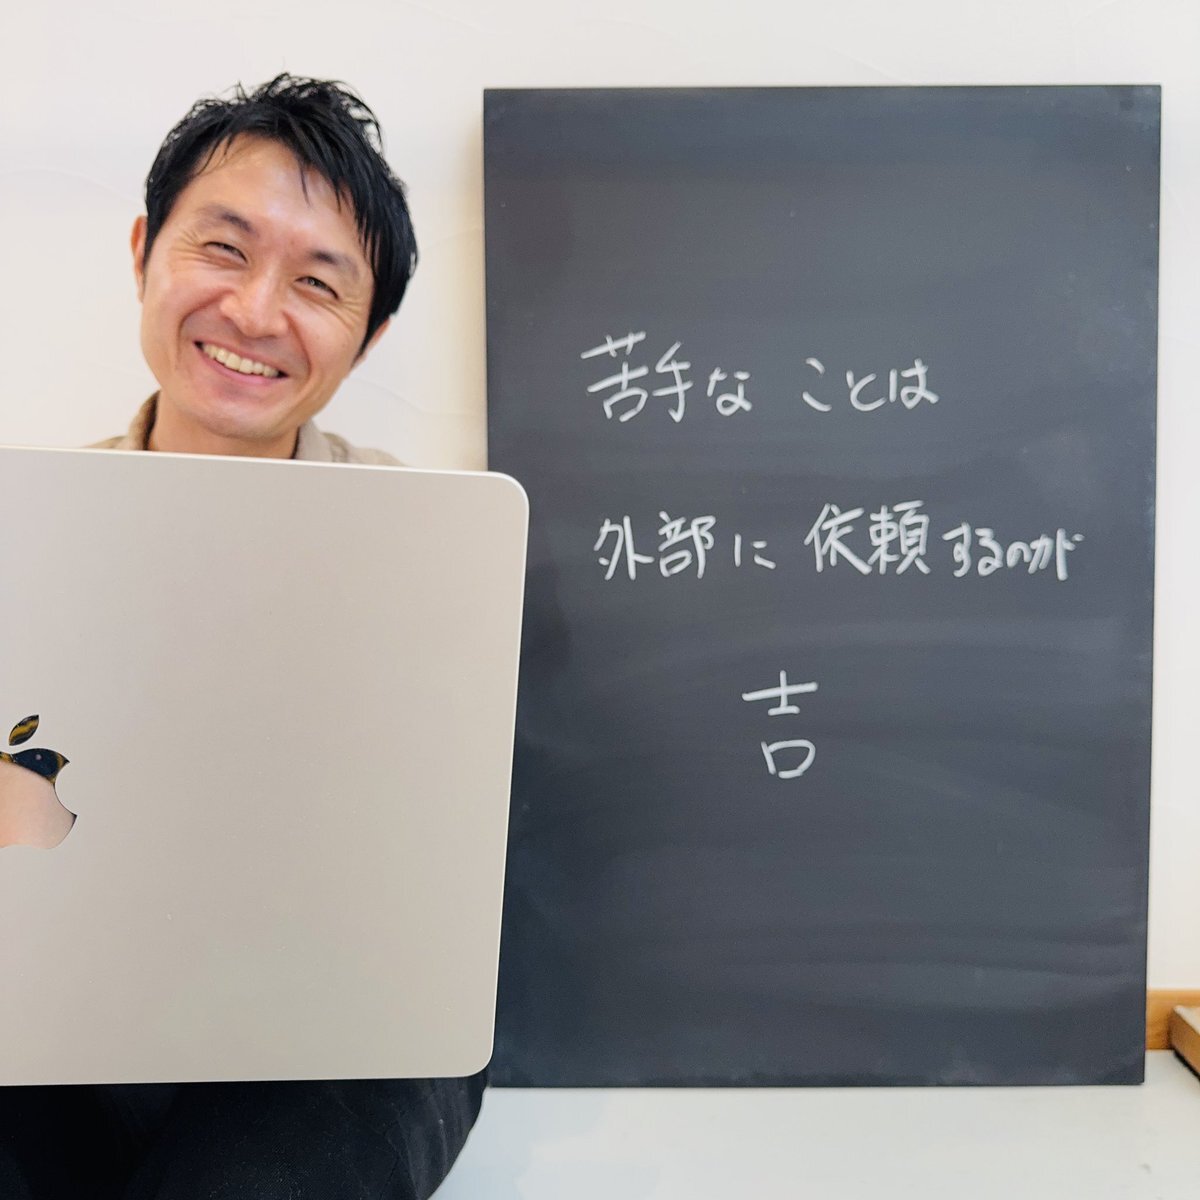 苦手なことは
外部に依頼するのが
吉